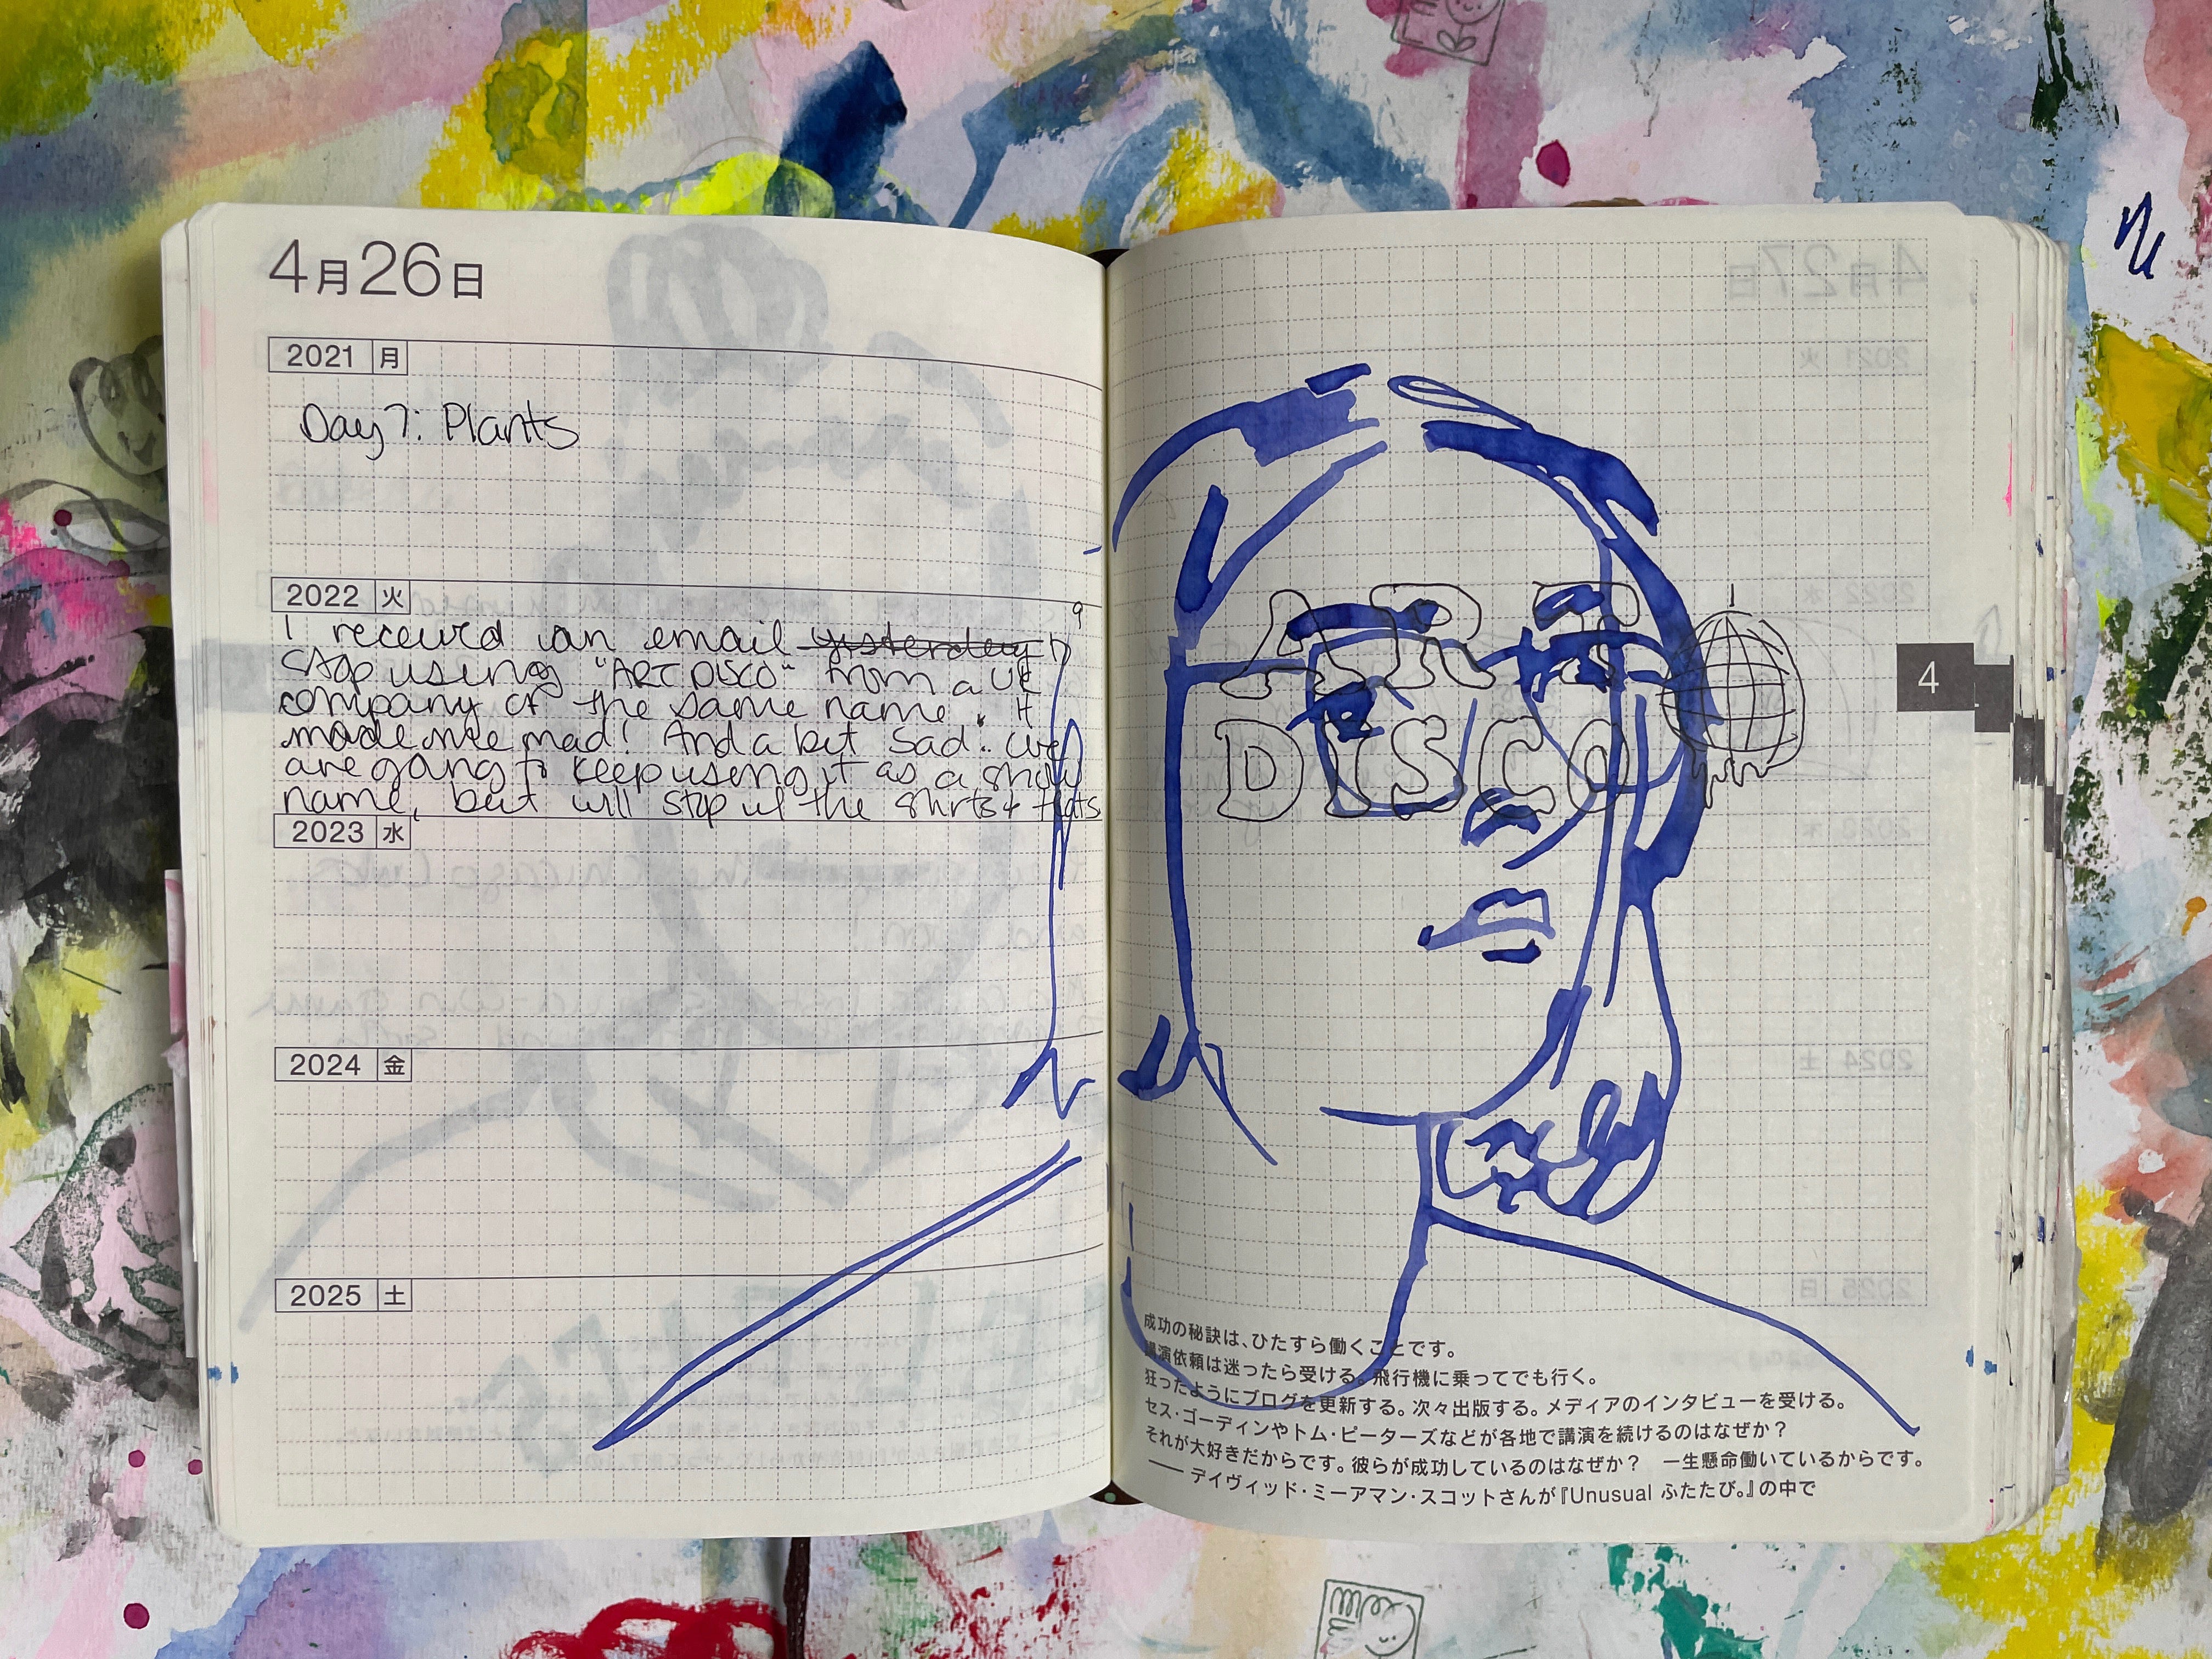 4月26日
2021 月
Day 7: Plants
2022 火
I received an email yesterday to
stop using "ART DISCO" from a UK
company of the same name. It
made me mad! And a bit sad. We
are going to keep using it as a show
name, but will stop w/ the shirts & hats
2023 水
2024 金
2025 土
ART
DISCO
4
成功の秘訣は、ひたすら働くことです。
講演依頼は迷ったら受ける。飛行機に乗ってでも行く。
狂ったようにブログを更新する。次々出版する。メディアのインタビューを受ける。
セス・ゴーディンやトム・ピーターズなどが各地で講演を続けるのはなぜか？
それが大好きだからです。彼らが成功しているのはなぜか？　一生懸命働いているからです。
── デイヴィッド・ミーアマン・スコットさんが『Unusual ふたたび。』の中で